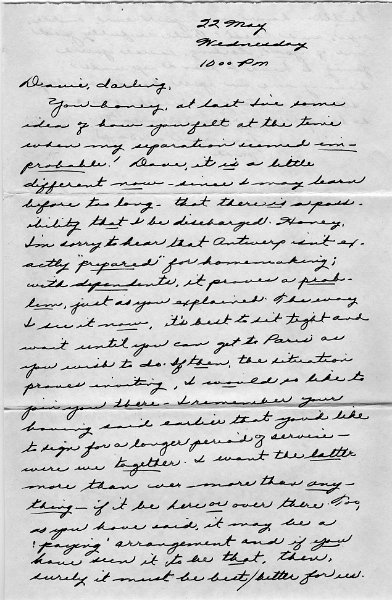 22 May
Wednesday
10:00 PM
Davie, darling,
You honey, at last I've some
idea of how you felt at the time
when my separation seemed im-
probable! Dave, it is a little
different now - since I may learn
before too long - that there is a poss-
ibility that I be discharged. Honey,
I'm sorry to hear that Antwerp isn't ex-
actly "prepared" for homemaking;
with dependents, it proves a prob-
lem, just as you explained. The way
I see it now, it's best to sit tight and
wait until you can get to Paris as
you wish to do. If then, the situation
proves inviting, I would so like to
join you there - I remember your
having said earlier that you'd like
to sign for a longer period of service -
were we together. I want the latter
more than ever - more than any-
thing - if it be here or over there. Too,
as you have said, it may be a
'paying' arrangement and if you
have seen it to be that, then,
surely it must be best/better for us.